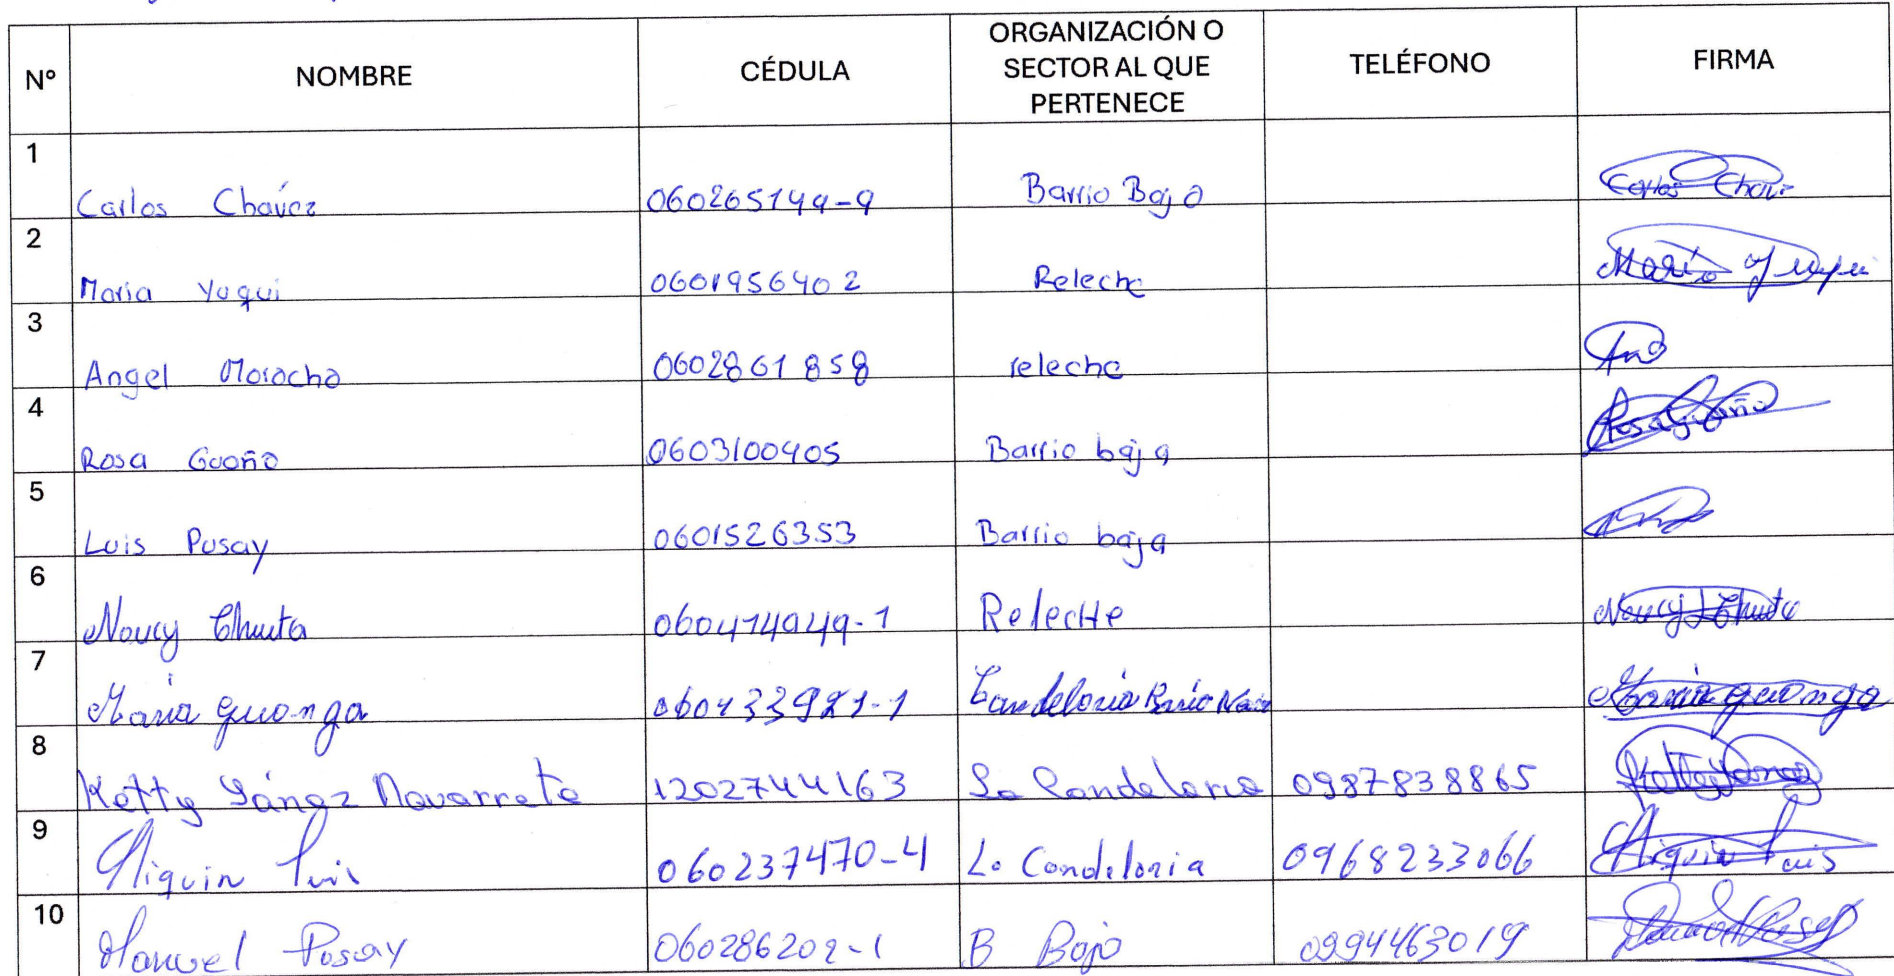 Nº NOMBRE CÉDULA ORGANIZACIÓN O SECTOR AL QUE PERTENECE TELÉFONO FIRMA
1 Carlos Chávez 060265144-9 Barrio Bajo Carlos Chavez
2 Maria Yuqui 0601956402 Releche Maria Yuqui
3 Angel Morocho 0602861858 releche
4 Rosa Guaño 0603100405 Barrio bajo Rosa Guaño
5 Luis Pusay 0601526353 Barrio bajo
6 Nancy Chuta 060414949-1 Releche Nancy Chuta
7 Maria Guonga 060433921-1 Candeloria Barrio Maria guonga
8 Ketty Yánez Navarrete 1202744163 La Candelaria 0987838865 Ketty Yanez
9 Aliquin Luis 060237470-4 La Candelaria 0968233066 Aliquin Luis
10 Manuel Pusay 060286202-1 B Bajo 0994463019